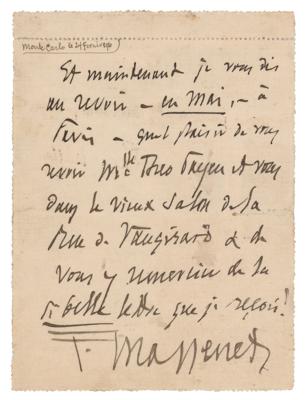 Monte Carlo le 24 février
Et maintenant je vous dis
au revoir – en Mai, – à
Paris – quel plaisir de vous
revoir Mlle Bres et vous
dans le vieux Salon de la
Rue de Vaugirard & de
vous y remercier de la
si belle lettre que je reçois!
J. Massenet